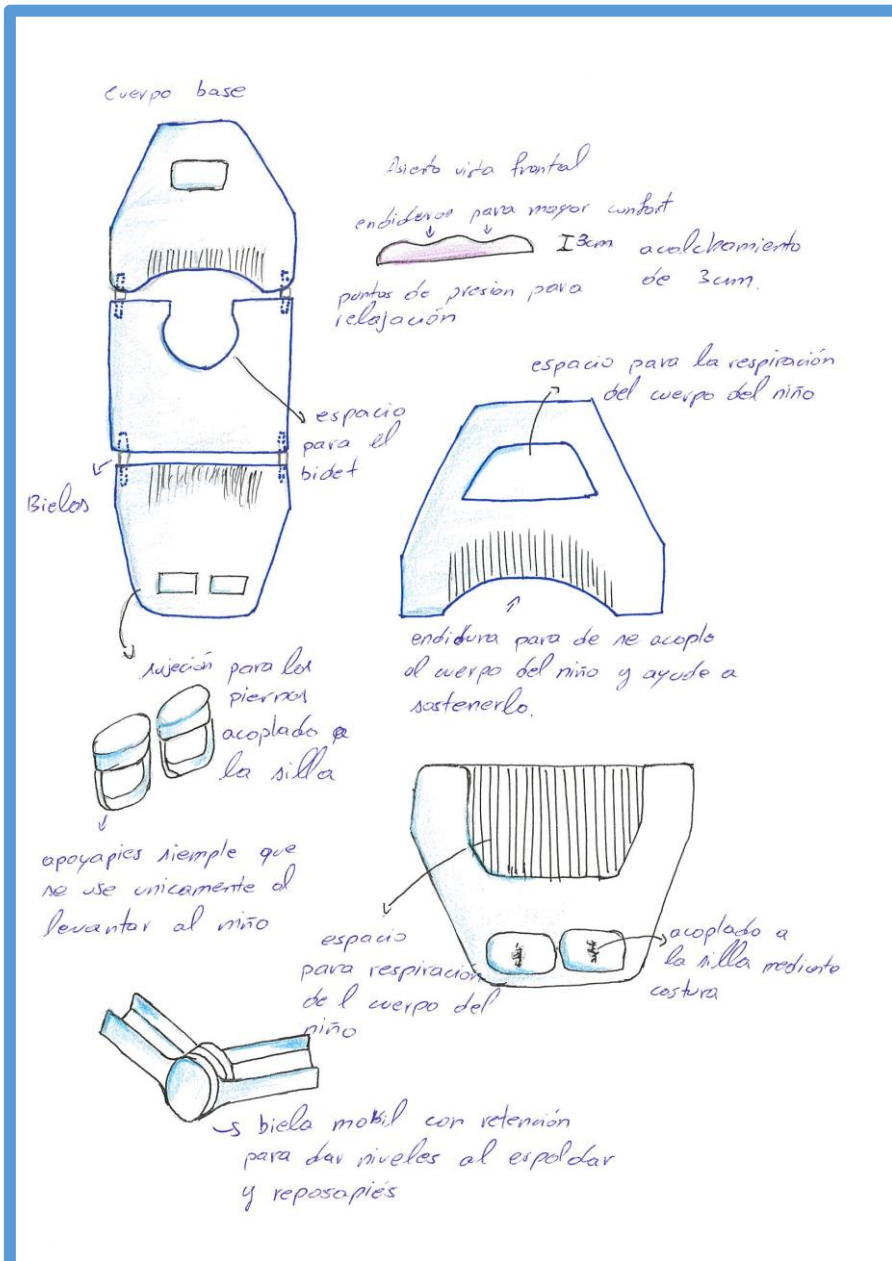 Cuerpo base
Asiento vista frontal
endideros para mayor confort
3cm
acolchamiento
de 3cm.
puntos de presion para
relajación
espacio para la respiración
del cuerpo del niño
espacio
para el
bidet
Bielas
endidura para de se acople
al cuerpo del niño y ayude a
sostenerlo.
sujeción para las
piernas
acoplado a
la silla
apoyapies siemple que
se use unicamente al
levantar al niño
espacio
para respiración
de l cuerpo del
niño
acoplado a
la silla mediante
costura
biela mobil con retención
para dar niveles al espaldar
y reposapiés